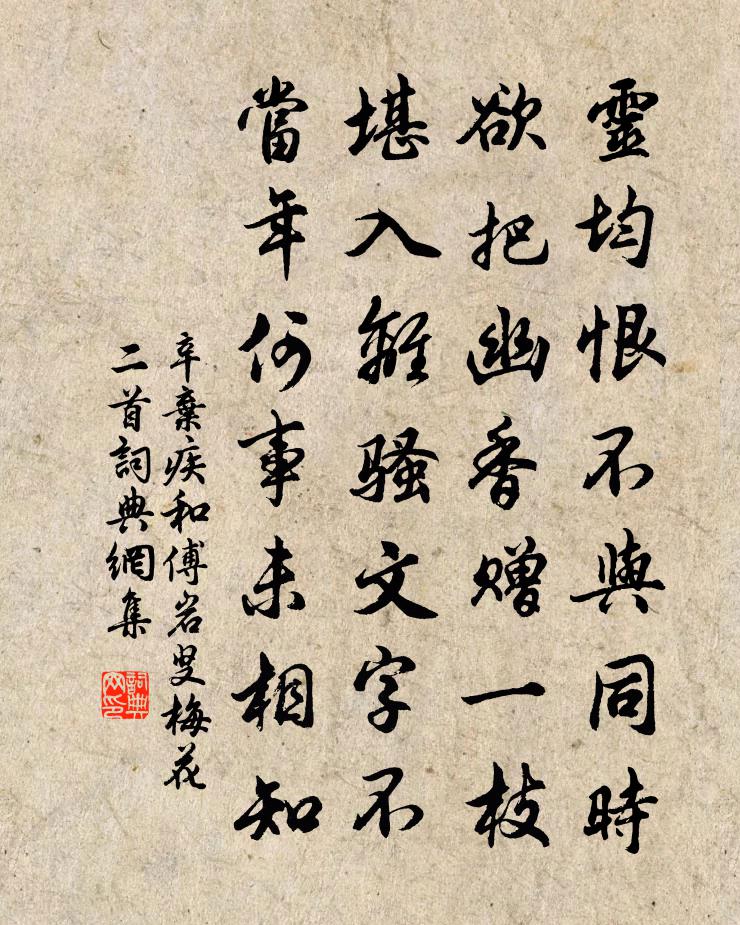 靈均恨不與同時
欲把幽香贈一枝
堪入離騷文字不
當年何事未相知
辛棄疾和傅岩叟梅花
二首詞典網集
詞典
网印